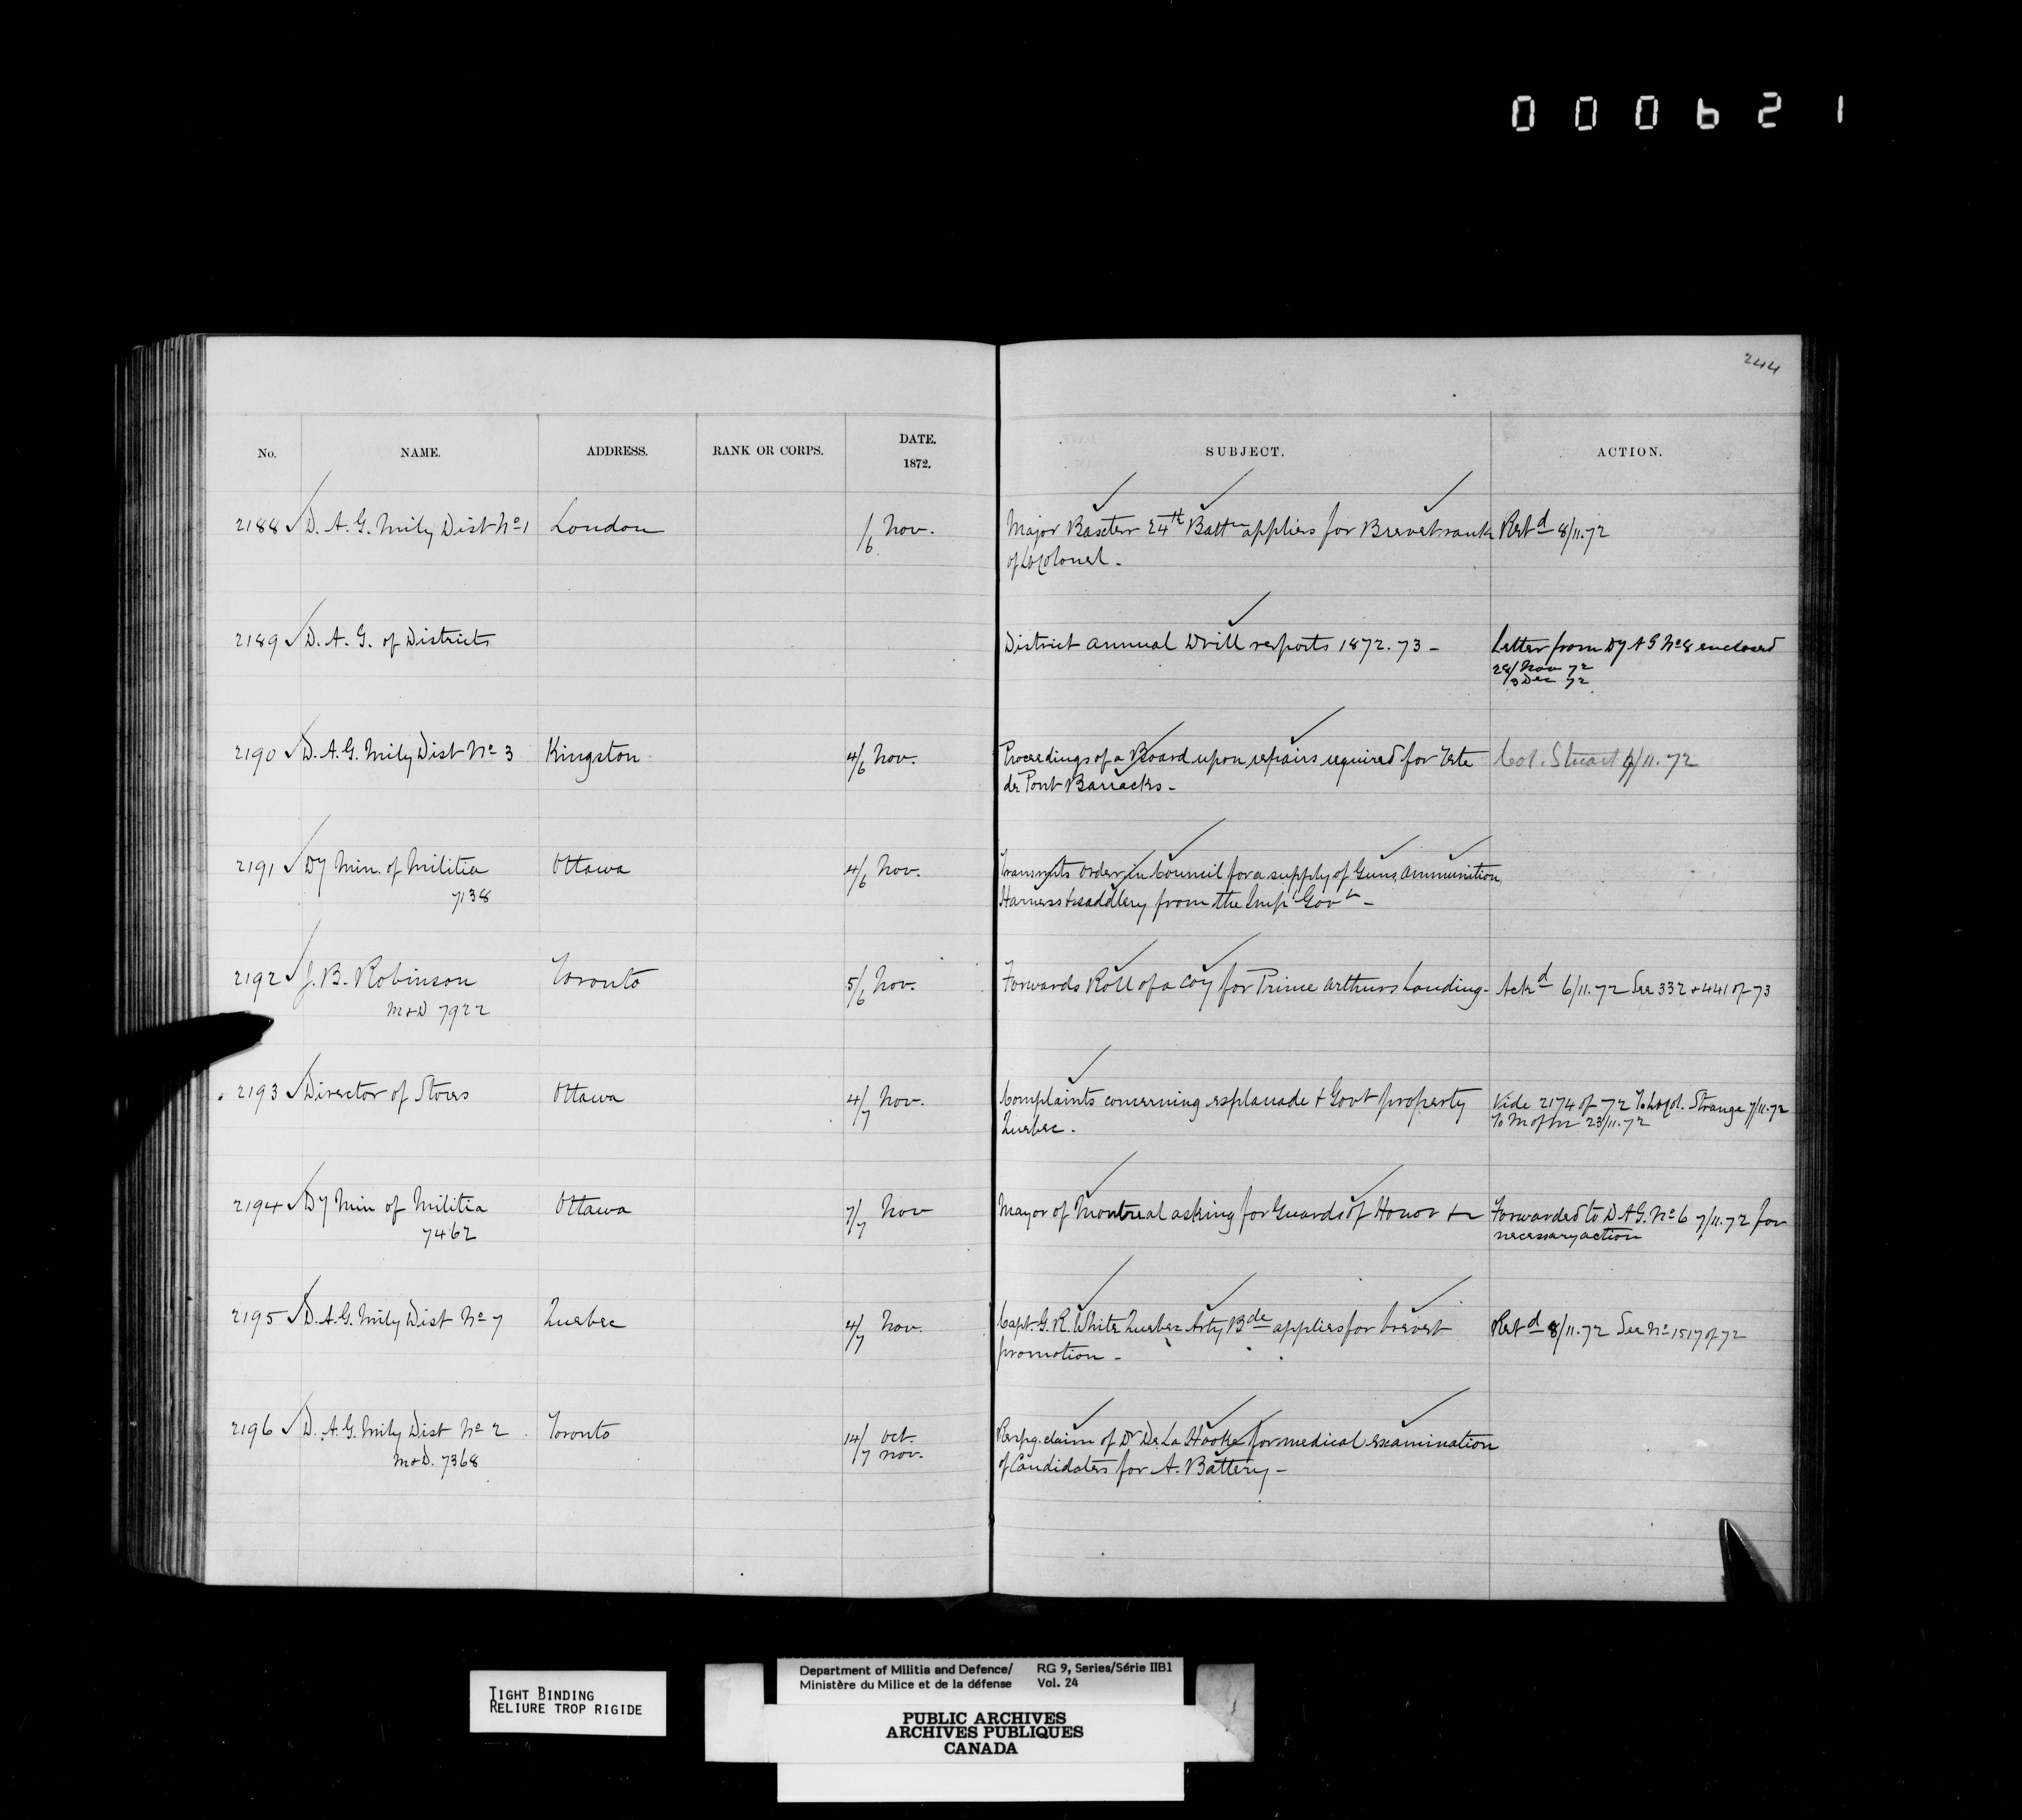 000621
244
No. NAME. ADDRESS. RANK OR CORPS. DATE. 1872. SUBJECT. ACTION.
2188 D. A. G. Mily Dist No 1 London 1/6 Nov. Major Baxter 24th Battn applies for Brevet rank Retd 8/11.72
of Lt Colonel.
2189 D. A. G. of Districts District Annual Drill reports 1872.73 - Letter from Dy A G No 8 enclosed
28/ Nov 72
/3 Dec 72
2190 D. A. G. Mily Dist No 3 Kingston 4/6 Nov. Proceedings of a Board upon repairs required for Tete Col. Stuart 6/11.72
de Pont Barracks -
2191 Dy Min. of Militia Ottawa 4/6 Nov. Transmits Order in Council for a supply of Guns, Ammunition,
7138 Harness & saddlery from the Impl Govt -
2192 J. B. Robinson Toronto 5/6 Nov. Forwards Roll of a Coy for Prince Arthurs Landing - Ackd 6/11.72 See 332 & 441 of 73
M & D 7922
2193 Director of Stores Ottawa 4/7 Nov. Complaints concerning esplanade & Govt property Vide 2174 of 72 To Lt Col. Strange 7/11.72
Quebec. To M of M 23/11.72
2194 Dy Min of Militia Ottawa 7/7 Nov Mayor of Montreal asking for Guards of Honor &c Forwarded to D A G. No 6 7/11.72 for
7462 necessary action
2195 D. A. G. Mily Dist No 7 Quebec 4/7 Nov. Capt. G. R. White Quebec Arty Bde applies for brevet Retd 8/11.72 See No 1517 of 72
promotion -
2196 D. A. G. Mily Dist No 2 Toronto 14/ Oct. Respg. claim of Dr De La Hooke for medical examination
M & D. 7368 /7 Nov. of Candidates for A. Battery -
TIGHT BINDING
RELIURE TROP RIGIDE
Department of Militia and Defence/ RG 9, Series/Série IIB1
Ministère du Milice et de la défense Vol. 24
PUBLIC ARCHIVES
ARCHIVES PUBLIQUES
CANADA